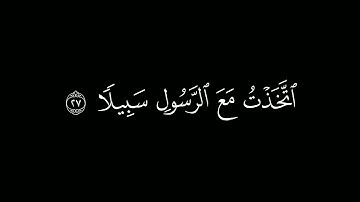 ٱتَّخَذۡتُ مَعَ ٱلرَّسُولِ سَبِيلٗا ٢٧